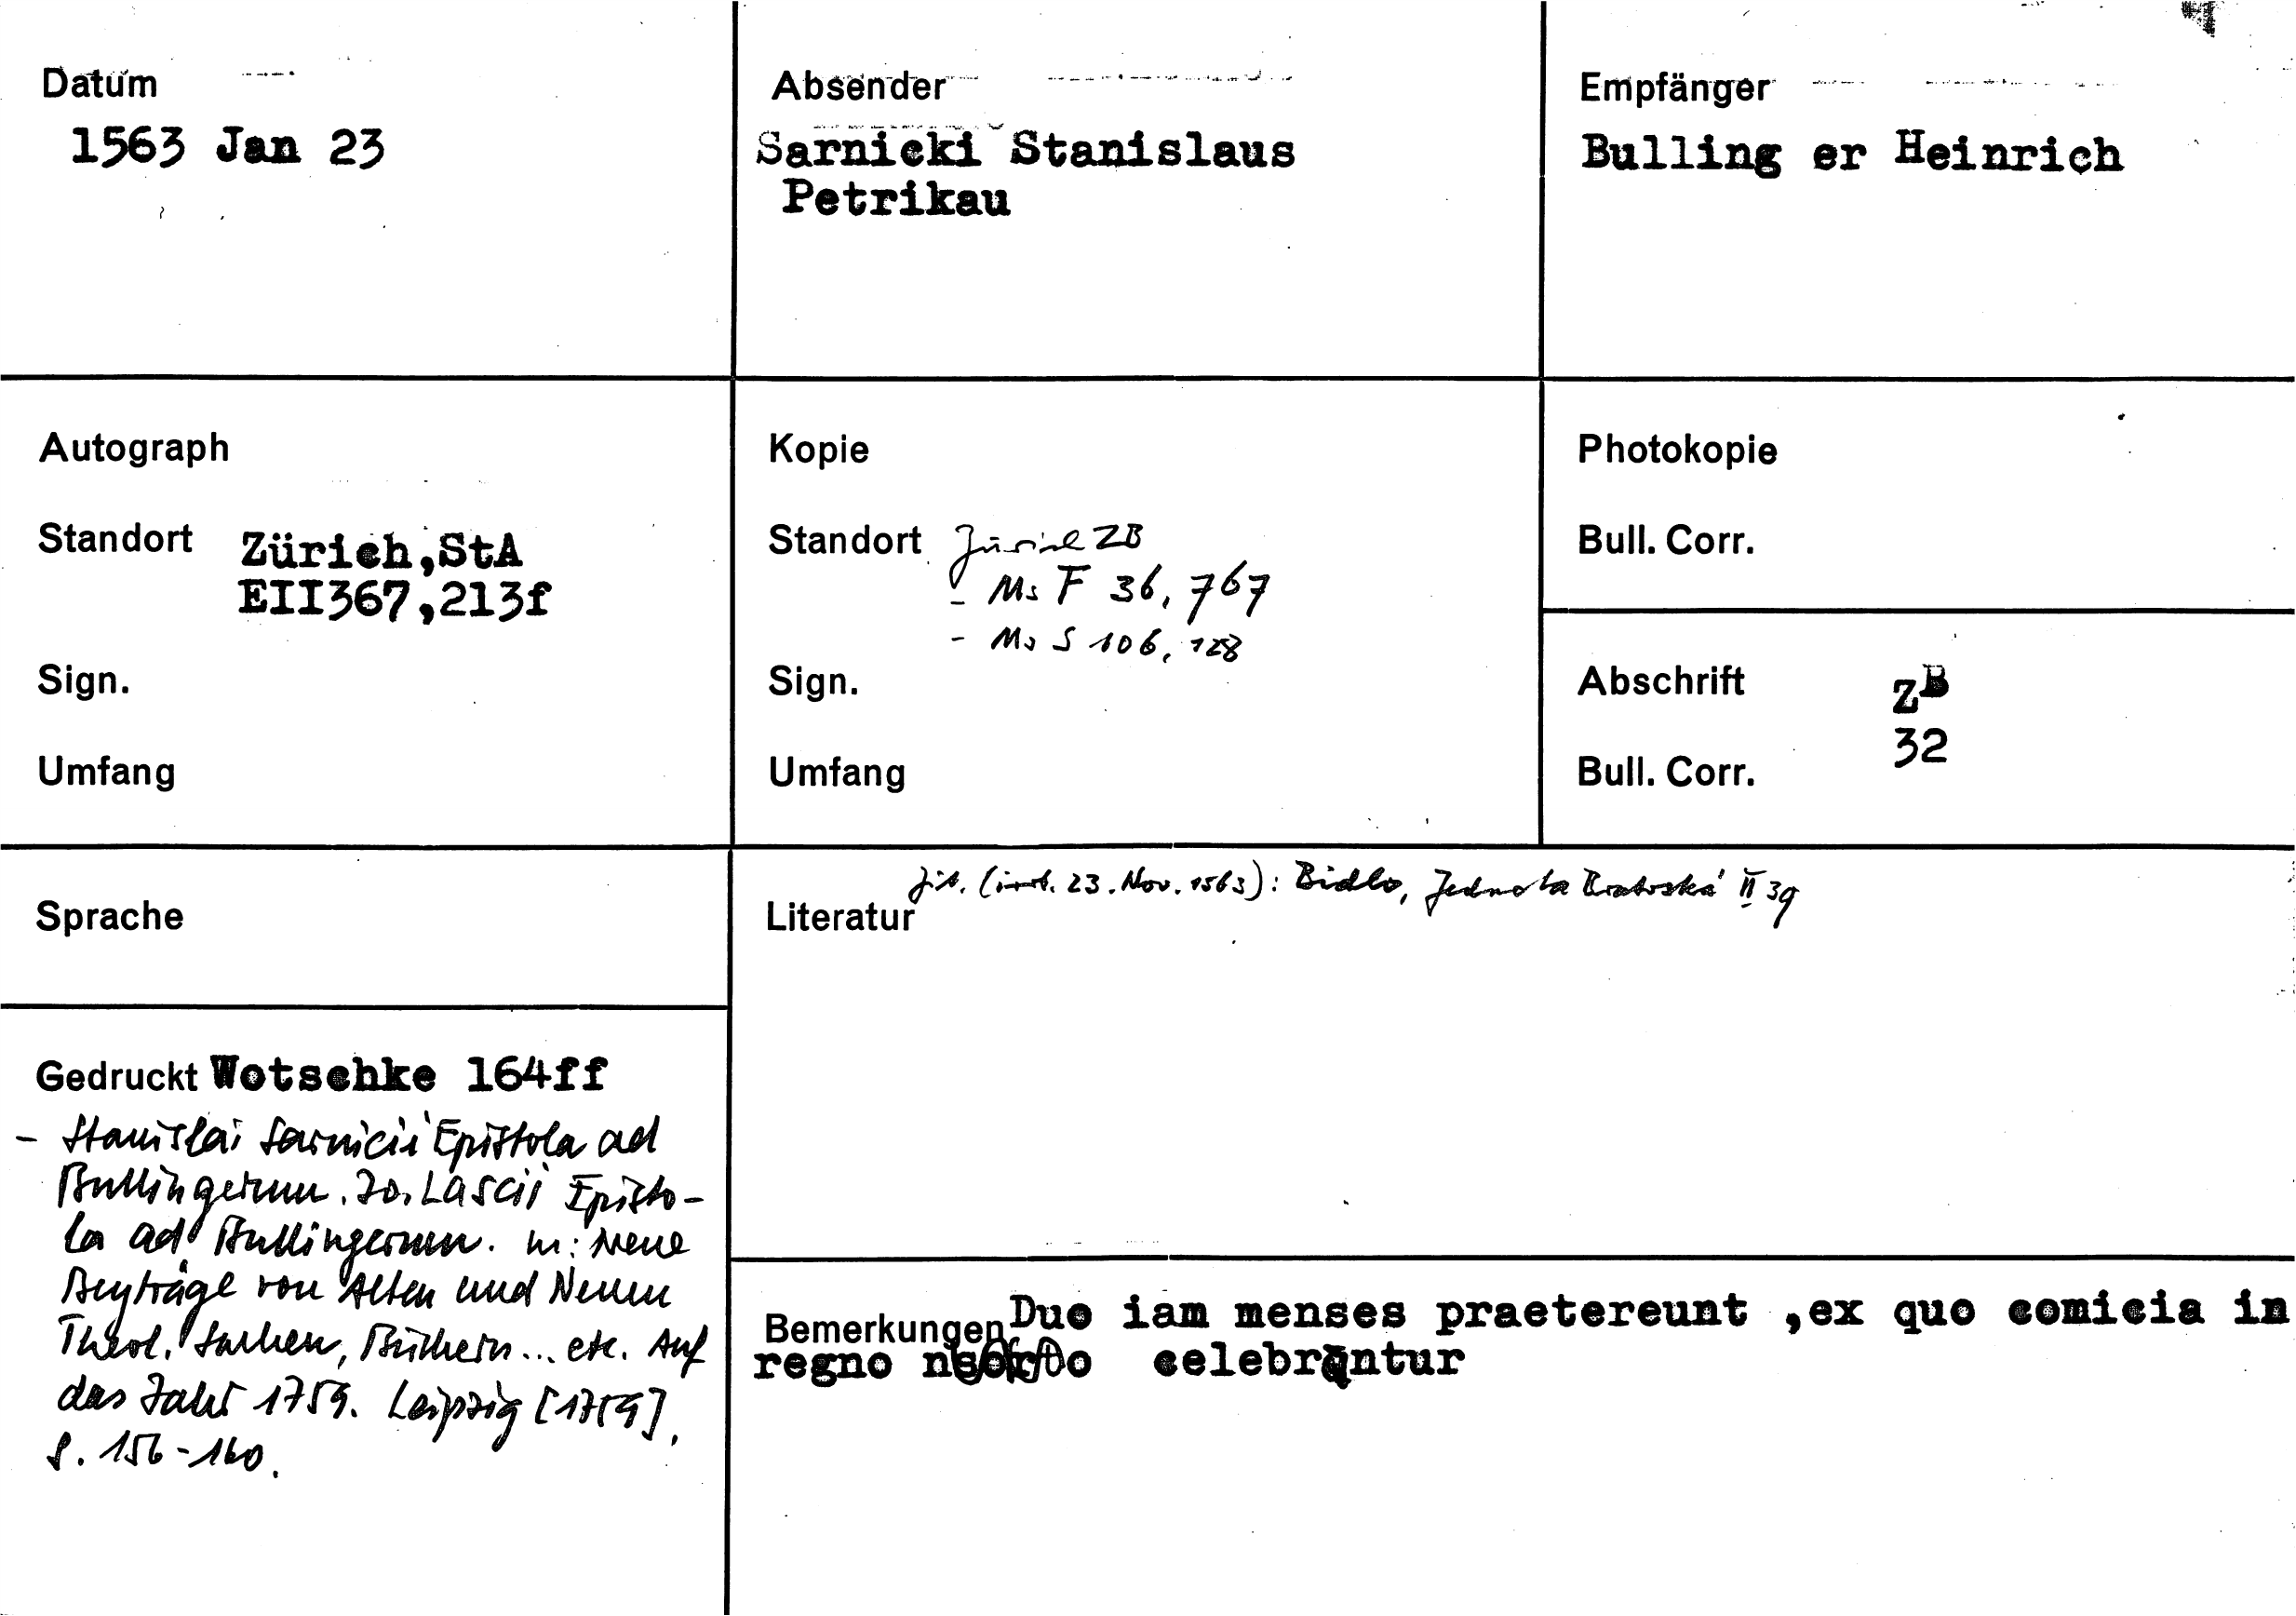 Datum
1563 Jan 23
Absender
Sarnicki Stanislaus
Petrikau
Empfänger
Bulling er Heinrich
Autograph
Standort Zürich,StA
EII367,213f
Sign.
Umfang
Kopie
Standort Zürich ZB
- Ms F 36, 767
- Ms S 106, 128
Sign.
Umfang
Photokopie
Bull. Corr.
Abschrift ZB
32
Bull. Corr.
Sprache
Literatur zit. (irrt. 23. Nov. 1563): Bidlo, Jednota Bratrská II 39
Gedruckt Wotschke 164ff
- Stanislai Sarnicii Epistola ad
Bullingerum. Jo. Lascii Episto-
la ad Bullingerum. in: Neue
Beyträge von Alten und Neuen
Theol. Sachen, Büchern... etc. Auf
das Jahr 1759. Leipzig [1759],
S. 156-160.
Bemerkungen Duo iam menses praetereunt ,ex quo comicia in
regno celebrantur